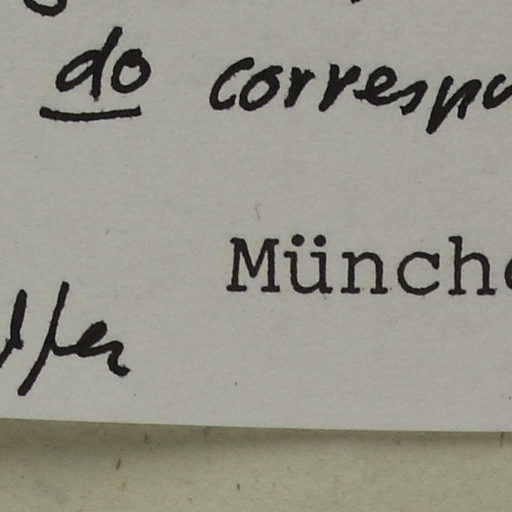 do correspo
Münche